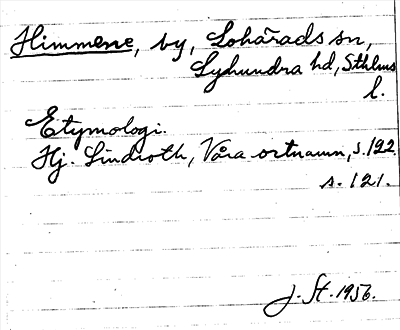 Himmene, by, Lohärads sn,
Lyhundra hd, Sthlms
l.
Etymologi.
Hj. Lindroth, Våra ortnamn, s. 192.
s. 121.
J. St. 1956.